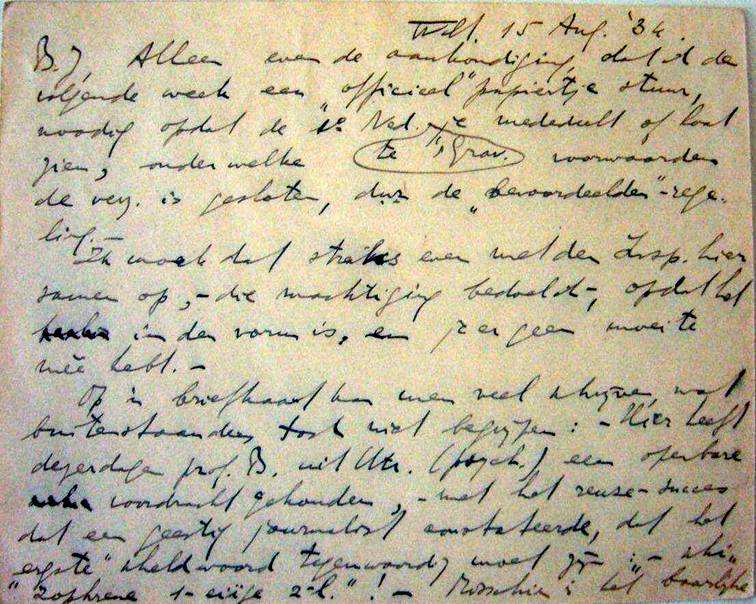 15 Aug. '34
B.J. Alleen even de aankondiging, dat ik de
volgende week een "officieel" papiertje stuur,
noodig opdat de 1e Ned. je mededeelt of laat
zien, onder welke te 's Grav. voorwaarden
de verz. is gesloten, dwz de "bevoordeelden"-rege-
ling. -
Ik maak dat straks even met den Insp. hier
samen op, - die machtiging bedoel ik -, opdat het
in den vorm is, en je er geen moeite
mêe hebt. -
Op 'n briefkaart kan men veel schrijven, wat
buitenstaanders toch niet begrijpen: - Hier heeft
dezerdagen prof. B. uit Utr. (psych.) een openbare
voordracht gehouden, - met het reuze-succes
dat een geestig journalist constateerde, dat het
"ergste" scheldwoord tegenwoordig moet zijn: - "schi-
zophrene 1-eiïge 2-l."! - Misschien is het